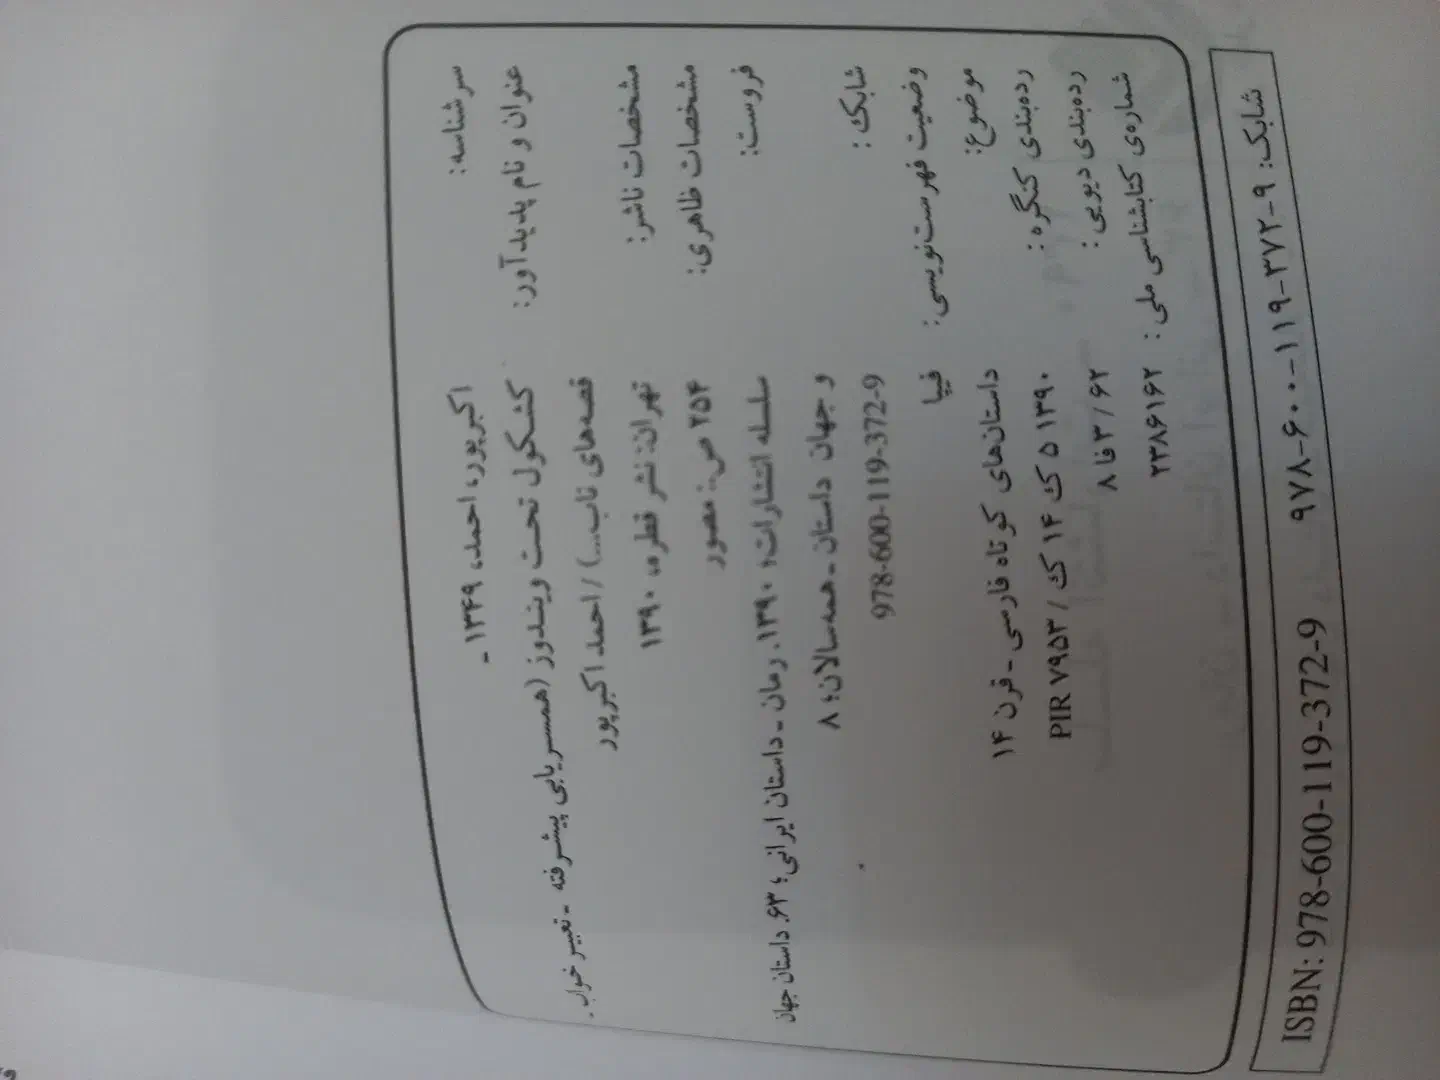 سرشناسه: اکبرپور، احمد، ۱۳۴۹ -
عنوان و نام پدیدآور: کشکول تحت ویندوز (همسریابی پیشرفته - تعبیر خواب -
قصه‌های ناب...) / احمد اکبرپور
مشخصات ناشر: تهران: نشر قطره، ۱۳۹۰
مشخصات ظاهری: ۲۵۴ ص.: مصور
فروست: سلسله انتشارات؛ ۱۳۹۰. رمان - داستان ایرانی؛ ۶۳. داستان جهان
و جهان داستان - همه‌سالان؛ ۸
شابک: 978-600-119-372-9
وضعیت فهرست‌نویسی: فیپا
موضوع: داستان‌های کوتاه فارسی - قرن ۱۴
رده‌بندی کنگره: ۱۳۹۰ ۵ ک ۱۴ ک / PIR ۷۹۵۳
رده‌بندی دیویی: ۶۲ / ۳ فا ۸
شماره‌ی کتابشناسی ملی: ۲۳۸۶۱۶۲
شابک: ۹-۳۷۲-۱۱۹-۶۰۰-۹۷۸ ISBN: 978-600-119-372-9